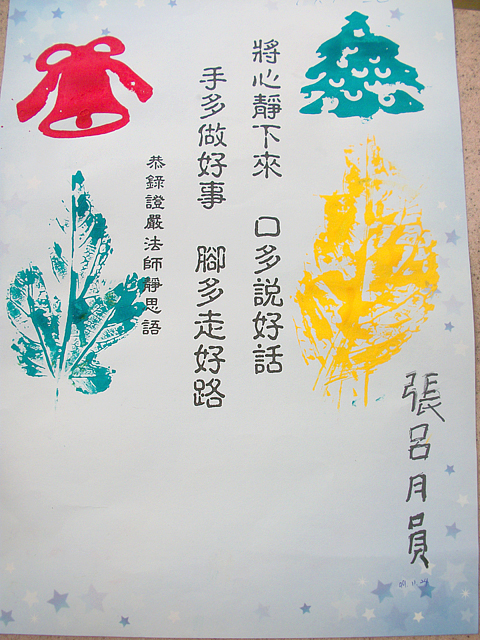 將心靜下來 口多說好話
手多做好事 腳多走好路
恭錄證嚴法師靜思語
張呂月員
09.11.24